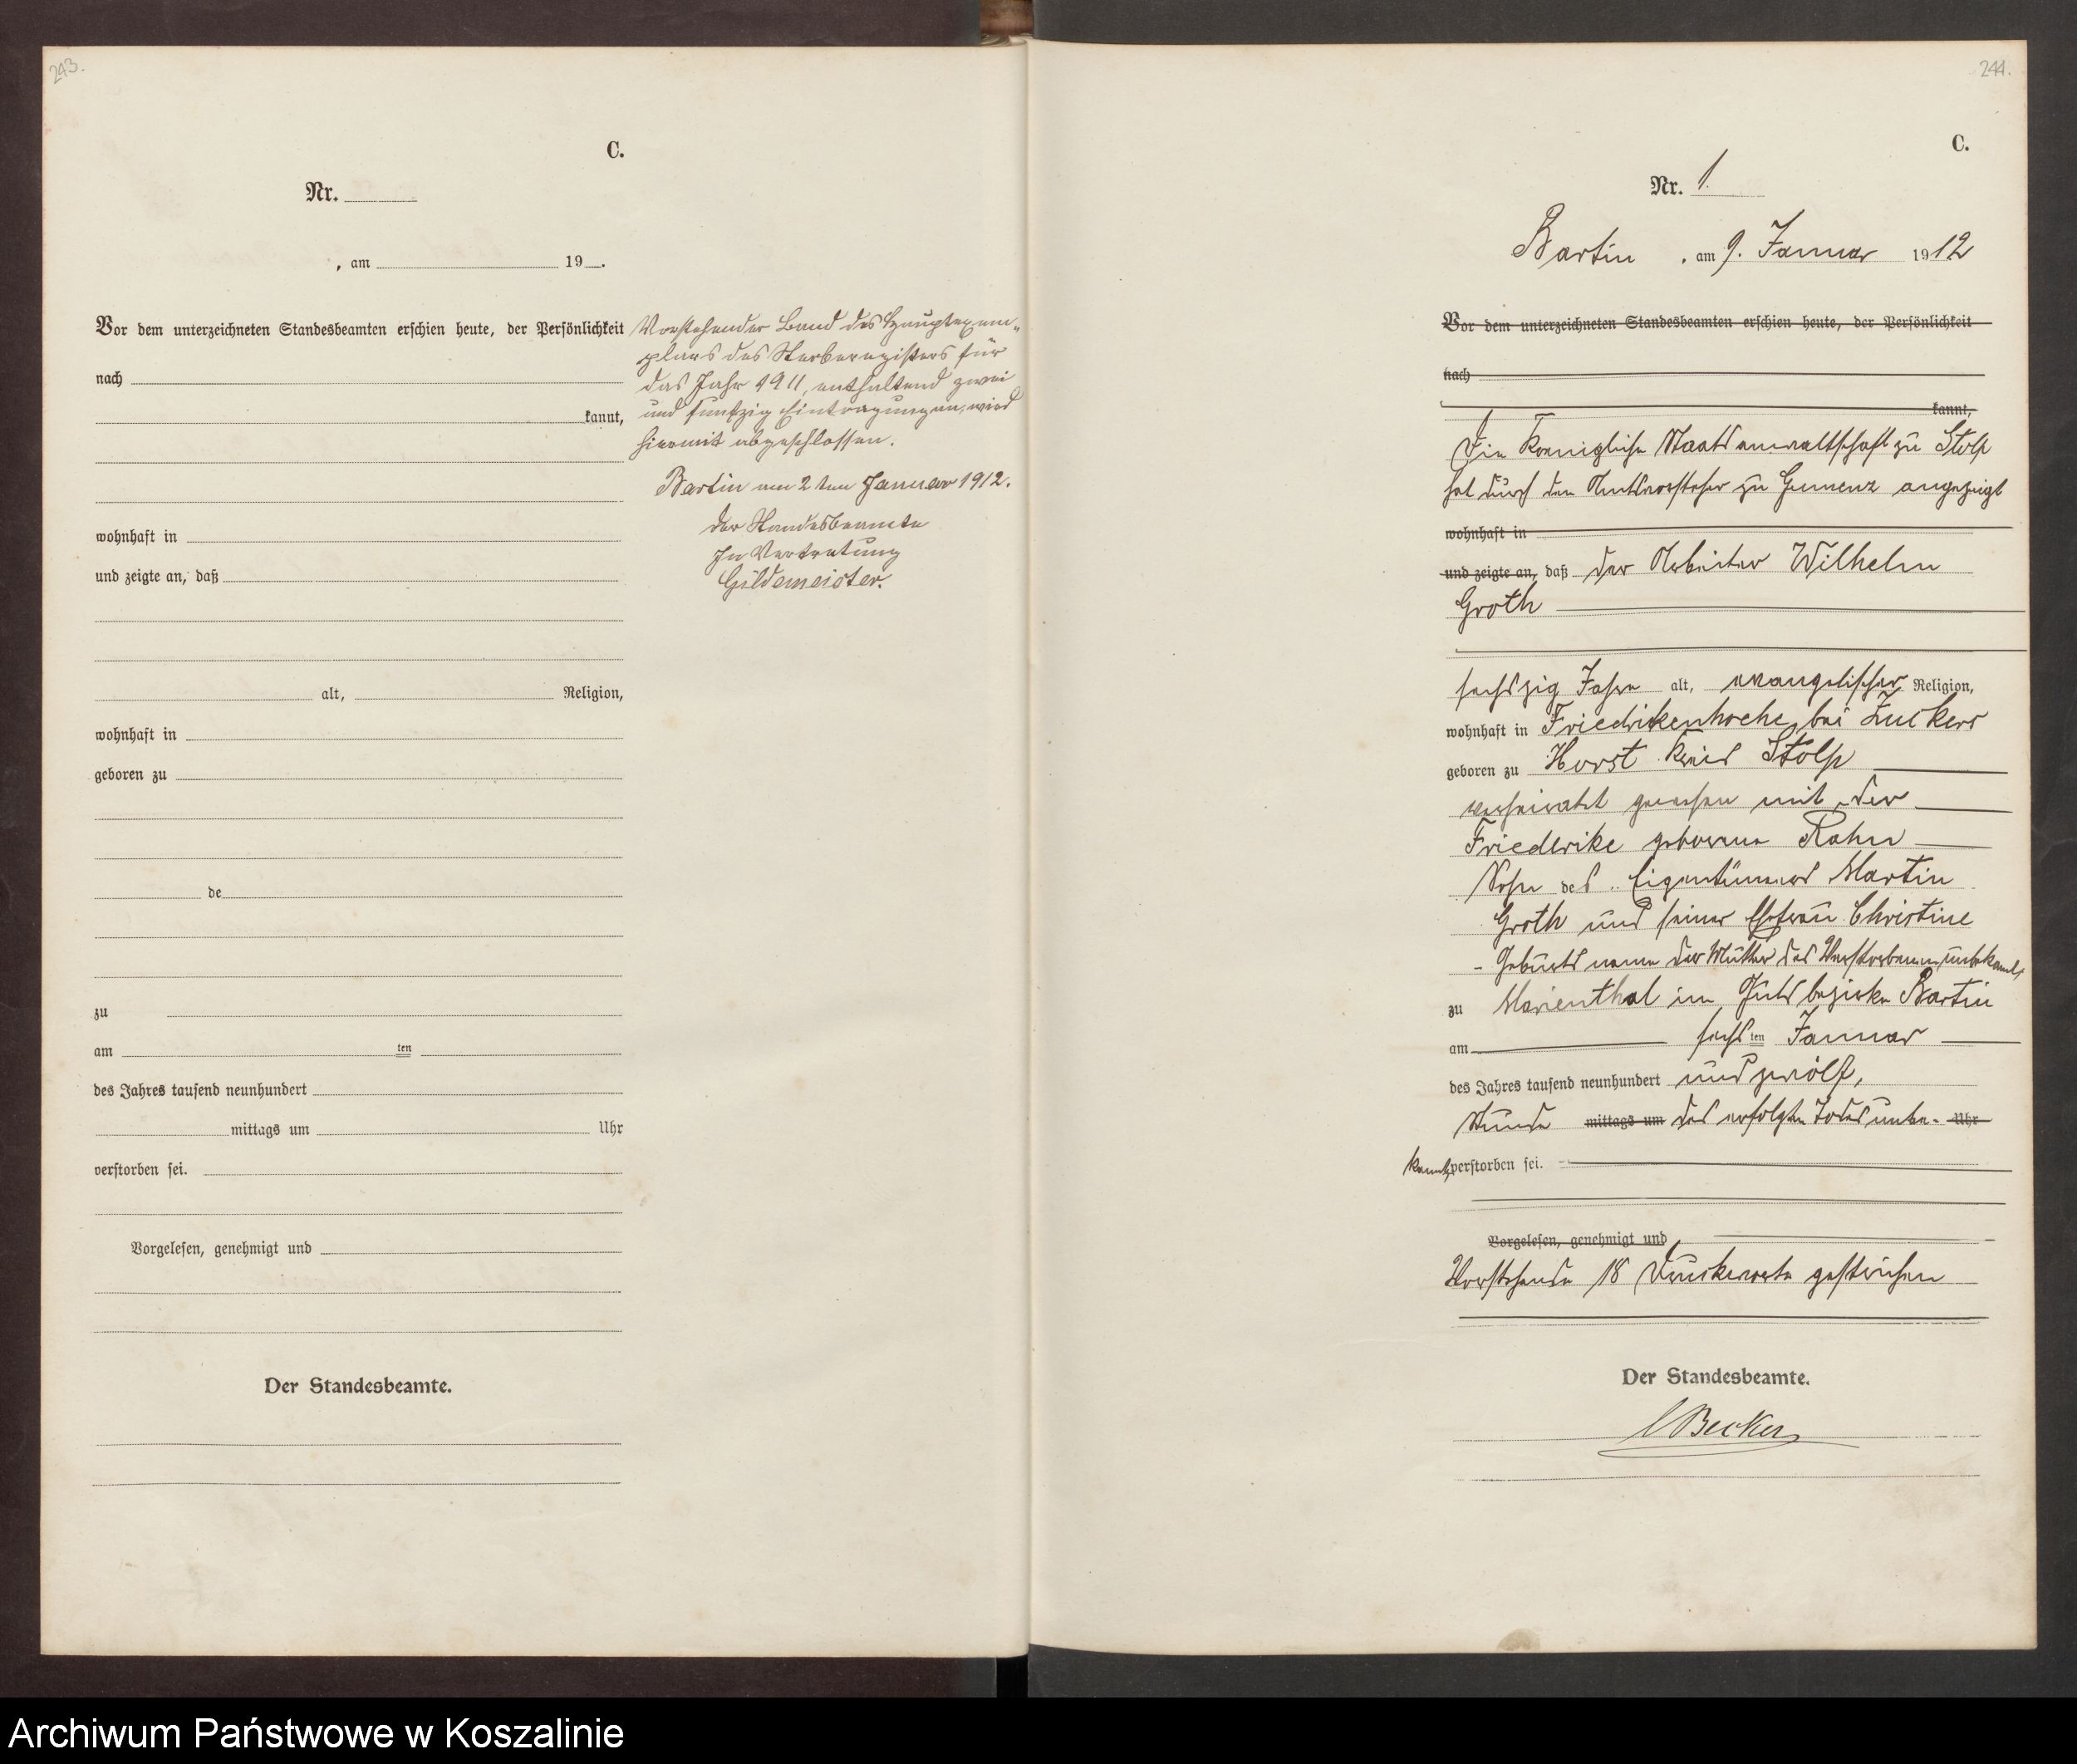 243.
C.
Nr.
, am 19 .
Vor dem unterzeichneten Standesbeamten erschien heute, der Persönlichkeit
nach
kannt,
wohnhaft in
und zeigte an, daß
alt, Religion,
wohnhaft in
geboren zu
de
zu
am ten
des Jahres tausend neunhundert
mittags um Uhr
verstorben sei.
Vorgelesen, genehmigt und
Der Standesbeamte.
Vorstehender Band des Hauptexem-
plars des Sterberegisters für
das Jahr 1911, enthaltend zwei
und funfzig Eintragungen, wird
hiermit abgeschlossen.
Bartin am 2ten Januar 1912.
Der Standesbeamte
In Vertretung
Güldemeister.
244.
C.
Nr. 1.
Bartin, am 9. Januar 1912
Vor dem unterzeichneten Standesbeamten erschien heute, der Persönlichkeit
nach
kannt,
Die Koenigliche Staatsanwaltschaft zu Stolp
hat durch den Amtsvorsteher zu Gumenz angezeigt
wohnhaft in
und zeigte an, daß der Arbeiter Wilhelm
Groth
sechszig Jahre alt, evangelischer Religion,
wohnhaft in Friedrikenhoehe, bei Zuckers
geboren zu Horst Kreis Stolp
verheiratet gewesen mit der
Friedrike geborene Rahn
Sohn des Eigentümers Martin
Groth und seiner Ehefrau Christine
- Geburtsname der Mutter des Verstorbenen unbekannt,
zu Marienthal im Gutsbezirke Bartin
am sechsten Januar
des Jahres tausend neunhundert und zwölf,
Stunde mittags um des erfolgten Todes unbe- Uhr
kannt, verstorben sei.
Vorgelesen, genehmigt und
Vorstehende 18 Druckworte gestrichen
Der Standesbeamte.
Becker
Archiwum Państwowe w Koszalinie